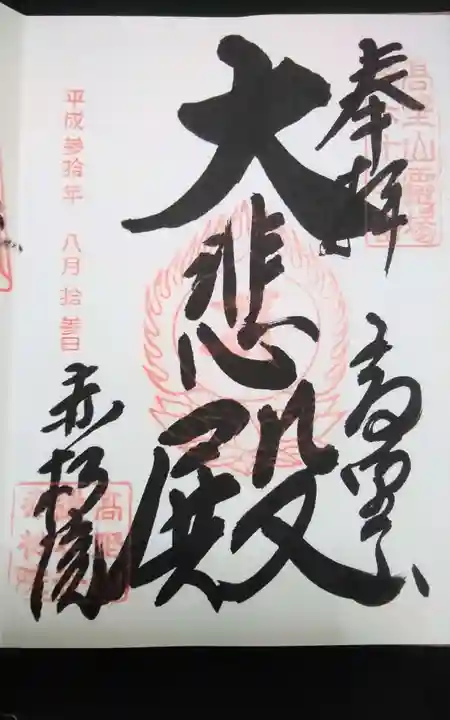 奉拝
高野山
大悲殿
平成参拾年 八月拾参日
赤松院